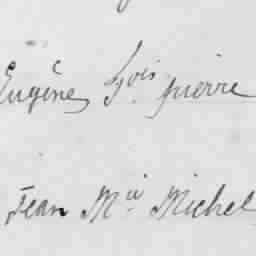 Eugène, fçois pierre
Jean Mie Michel